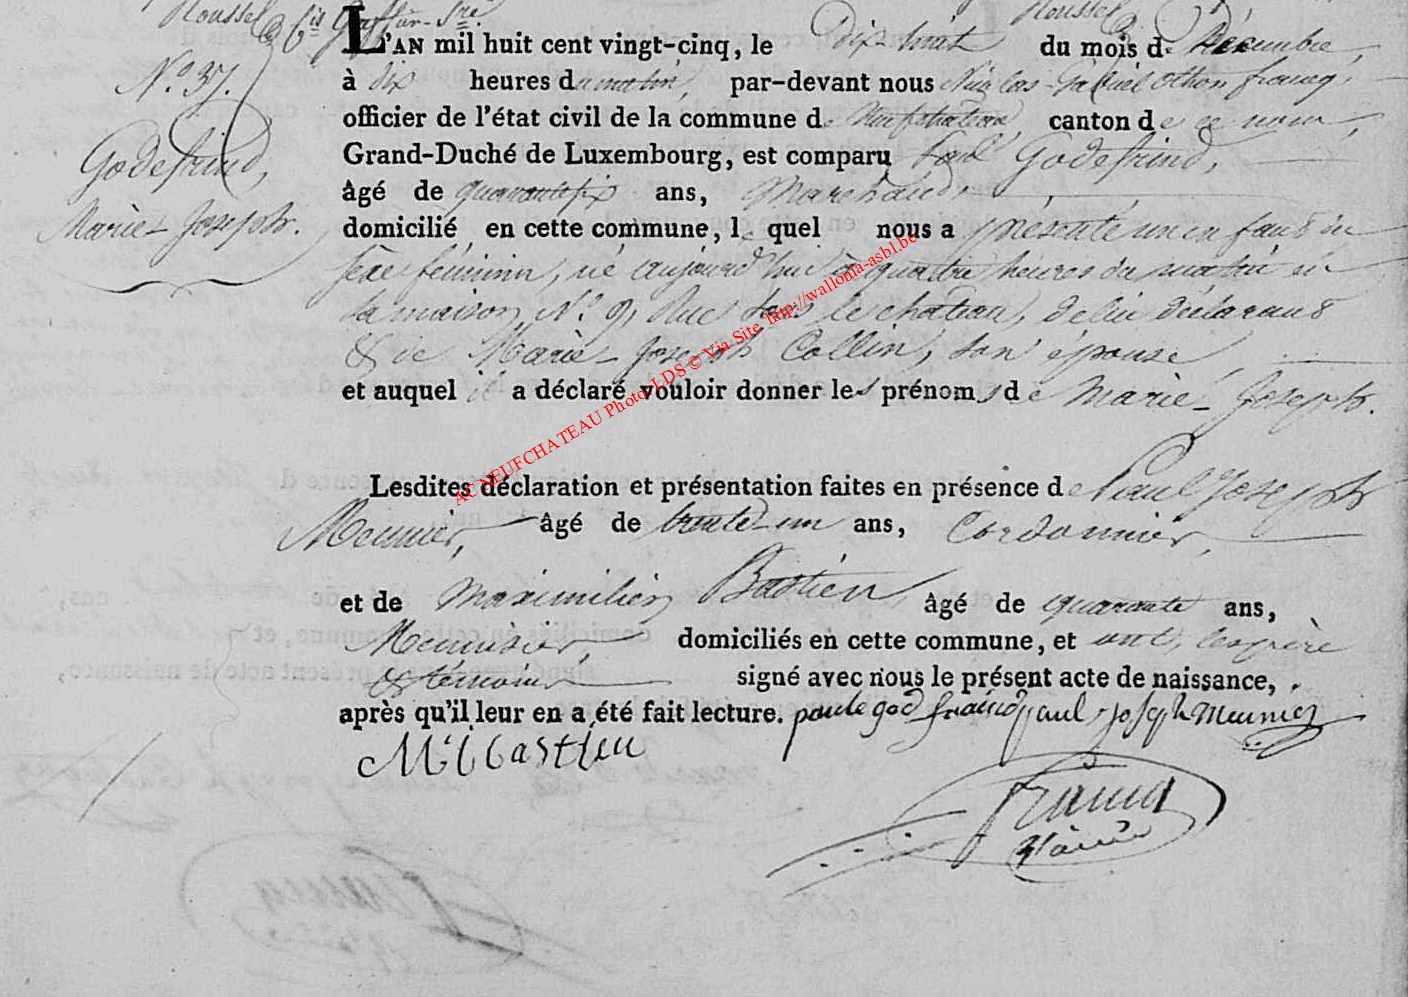 Roussel
Roussel
L'AN mil huit cent vingt-cinq, le dix-huit du mois de Décembre,
N.° 37.
à dix heures du matin, par-devant nous Nicolas-Gabriel Othon francq,
officier de l'état civil de la commune de Neufchateau, canton de ce nom,
Godefrind,
Grand-Duché de Luxembourg, est comparu Paul Godefrind,
âgé de quarante six ans, Marchand,
Marie-Joseph.
domicilié en cette commune, le quel nous a présenté un enfant du
sexe féminin, né aujourd'hui à quatre heures du matin en
la maison N.° 9, Rue le chateau, de lui déclarant
& de Marie-Joseph Collin, son épouse,
et auquel il a déclaré vouloir donner les prénoms de Marie-Joseph.
Lesdites déclaration et présentation faites en présence de Paul Joseph
Meunier, âgé de trente-un ans, Cordonnier,
et de Maximilien Bastien âgé de quarante ans,
Menuisier, domiciliés en cette commune, et ont, les père
& témoins signé avec nous le présent acte de naissance,
après qu'il leur en a été fait lecture. paul Joseph Meunier
M: Bastien
Francq
AC NEUFCHATEAU Photo LDS © Via Site http://wallonia-asbl.be